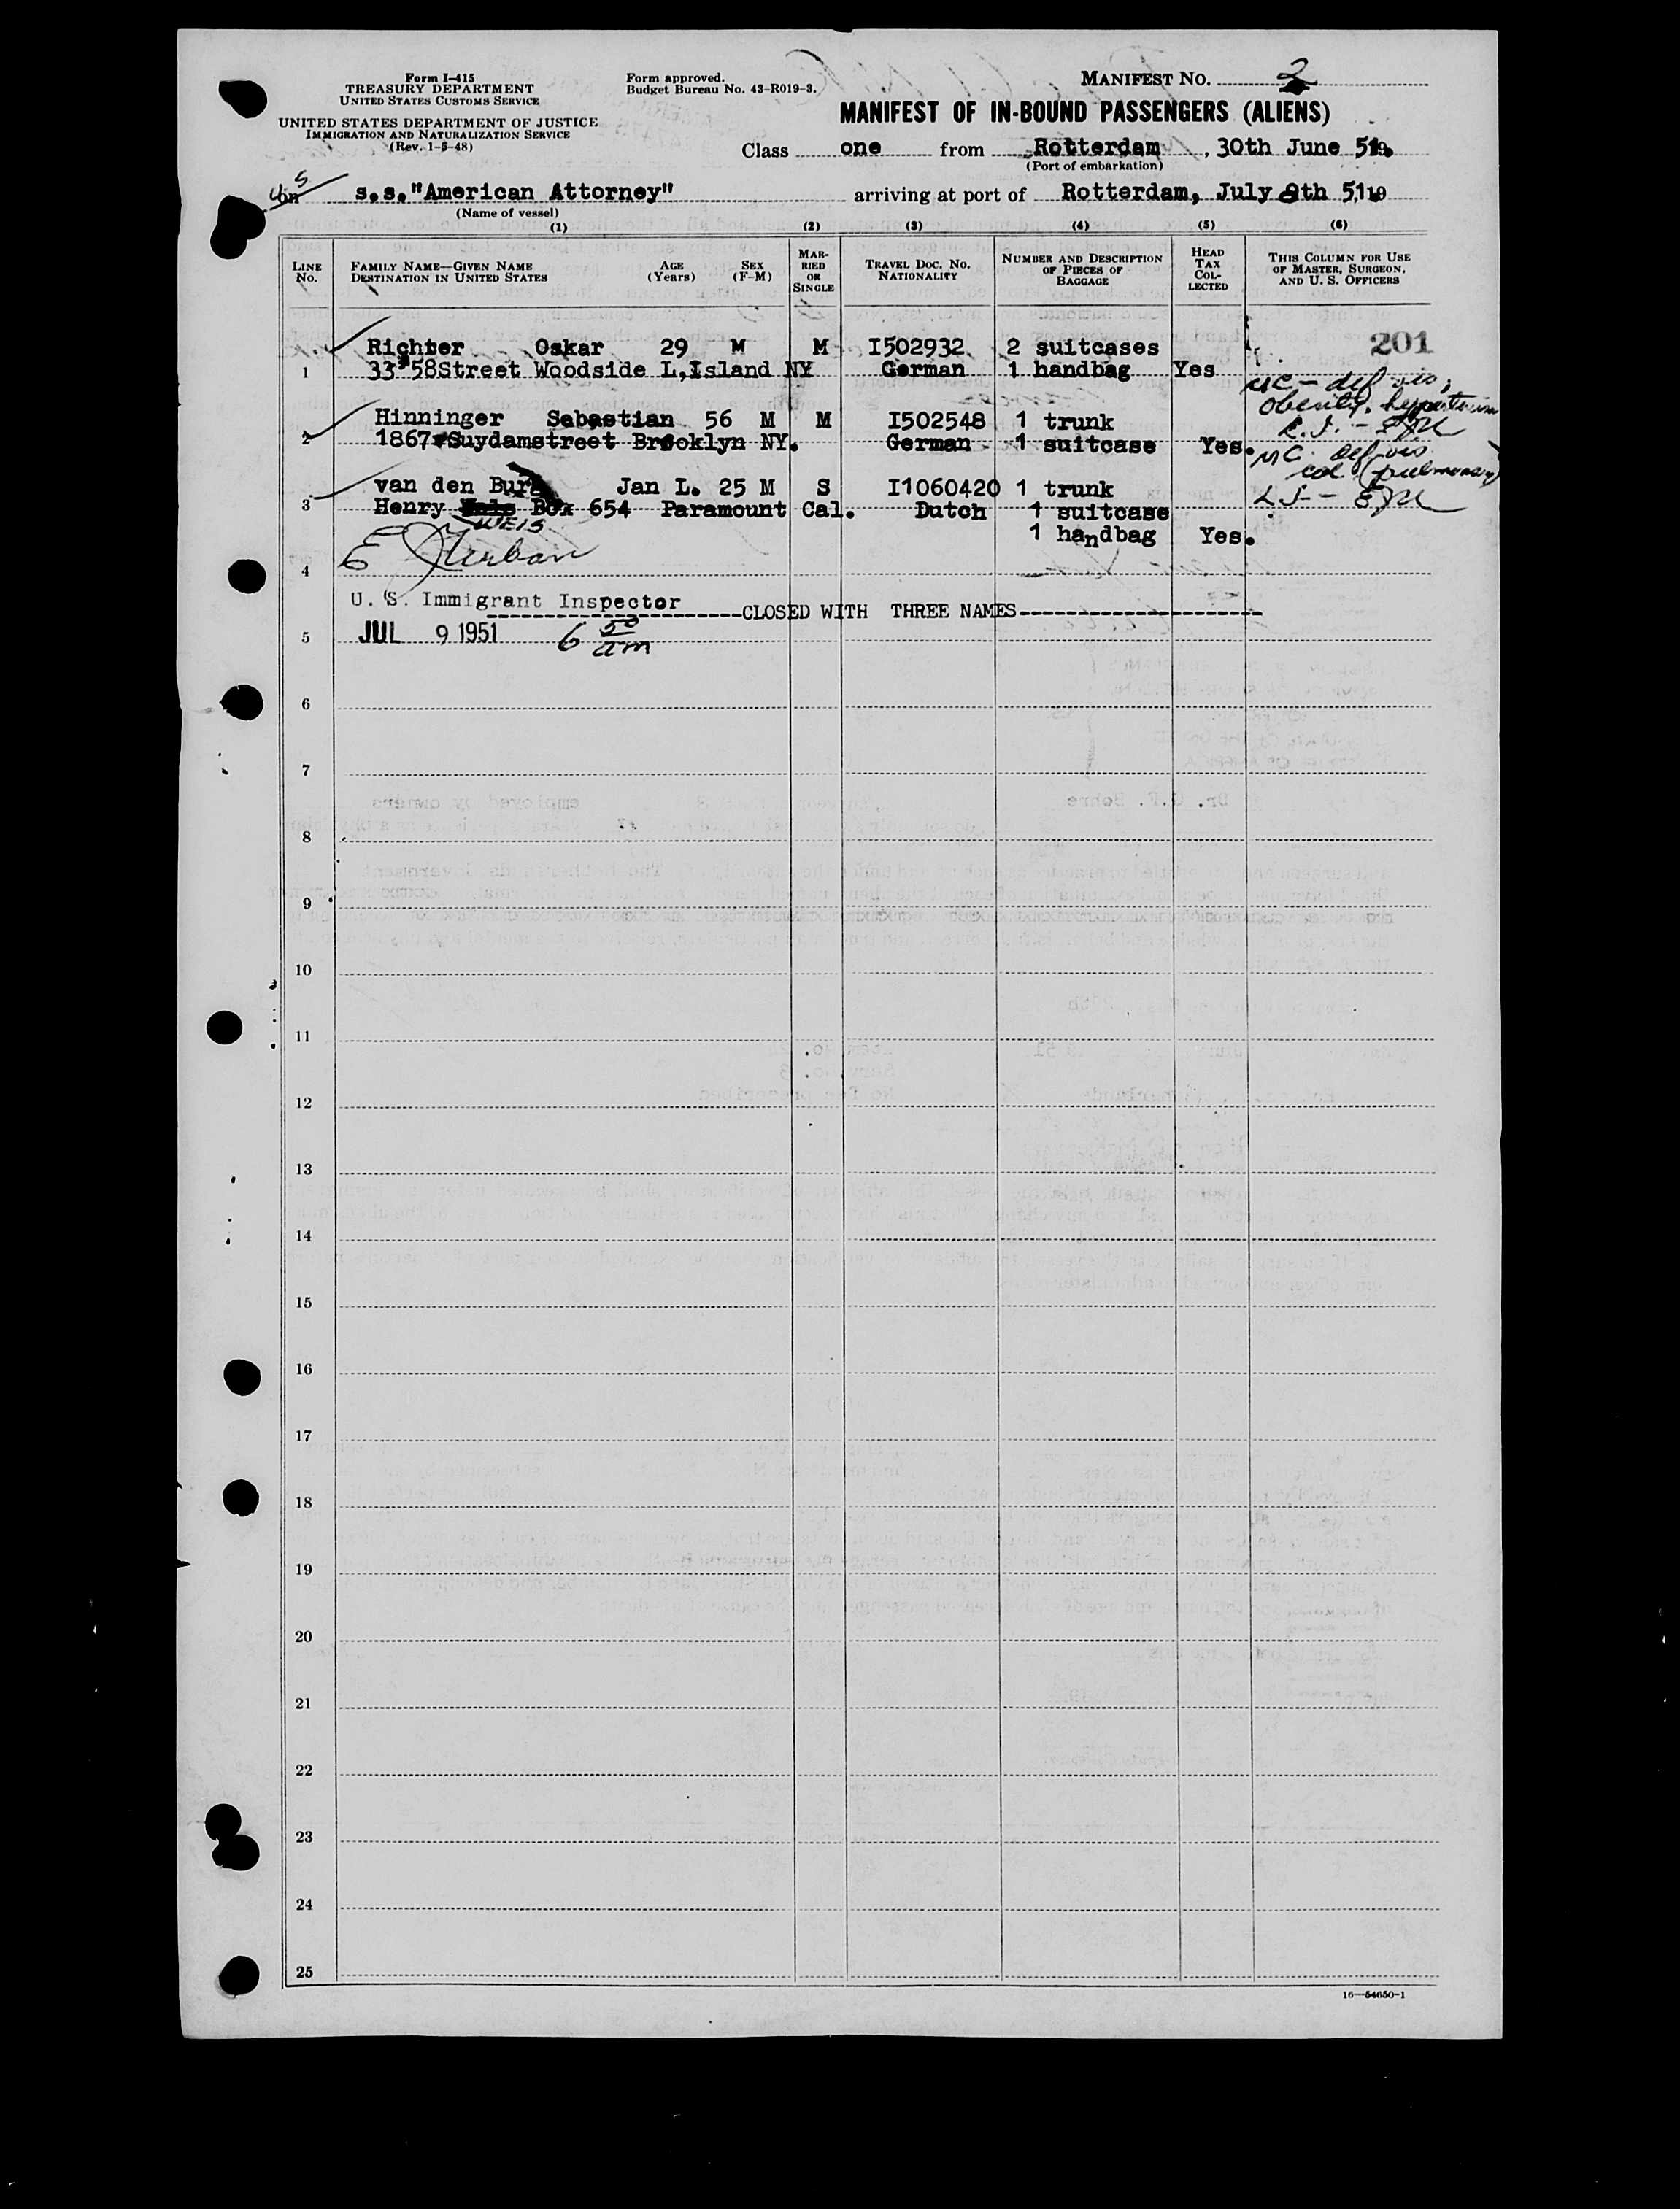 Form I-415
TREASURY DEPARTMENT
UNITED STATES CUSTOMS SERVICE
UNITED STATES DEPARTMENT OF JUSTICE
IMMIGRATION AND NATURALIZATION SERVICE
(Rev. 1-5-48)
Form approved.
Budget Bureau No. 43-R019-3.
MANIFEST NO. 2
MANIFEST OF IN-BOUND PASSENGERS (ALIENS)
Class one from Rotterdam, 30th June 51
(Port of embarkation)
on s.s."American Attorney" arriving at port of Rotterdam, July 9th 51, 19
(Name of vessel)
(1) (2) (3) (4) (5) (6)
LINE NO. FAMILY NAME—GIVEN NAME DESTINATION IN UNITED STATES AGE (Years) SEX (F-M) MARRIED OR SINGLE TRAVEL DOC. NO. NATIONALITY NUMBER AND DESCRIPTION OF PIECES OF BAGGAGE HEAD TAX COLLECTED THIS COLUMN FOR USE OF MASTER, SURGEON, AND U. S. OFFICERS
201
Richter Oskar 29 M M I502932 2 suitcases
1 33"58Street Woodside L,Island NY German 1 handbag Yes
MC - def vis,
obesity, hypertension
Hinninger Sebastian 56 M M I502548 1 trunk
2 1867 Suydamstreet Brooklyn NY. German 1 suitcase Yes.
MC def vis
(pulmonary)
van den Burg Jan L. 25 M S I1060420 1 trunk
3 Henry Box 654 Paramount Cal. Dutch 1 suitcase
WEIS
1 handbag Yes.
4
U. S. Immigrant Inspector
CLOSED WITH THREE NAMES
5 JUL 9 1951 6 50 am
6
7
8
9
10
11
12
13
14
15
16
17
18
19
20
21
22
23
24
25
16—54650-1